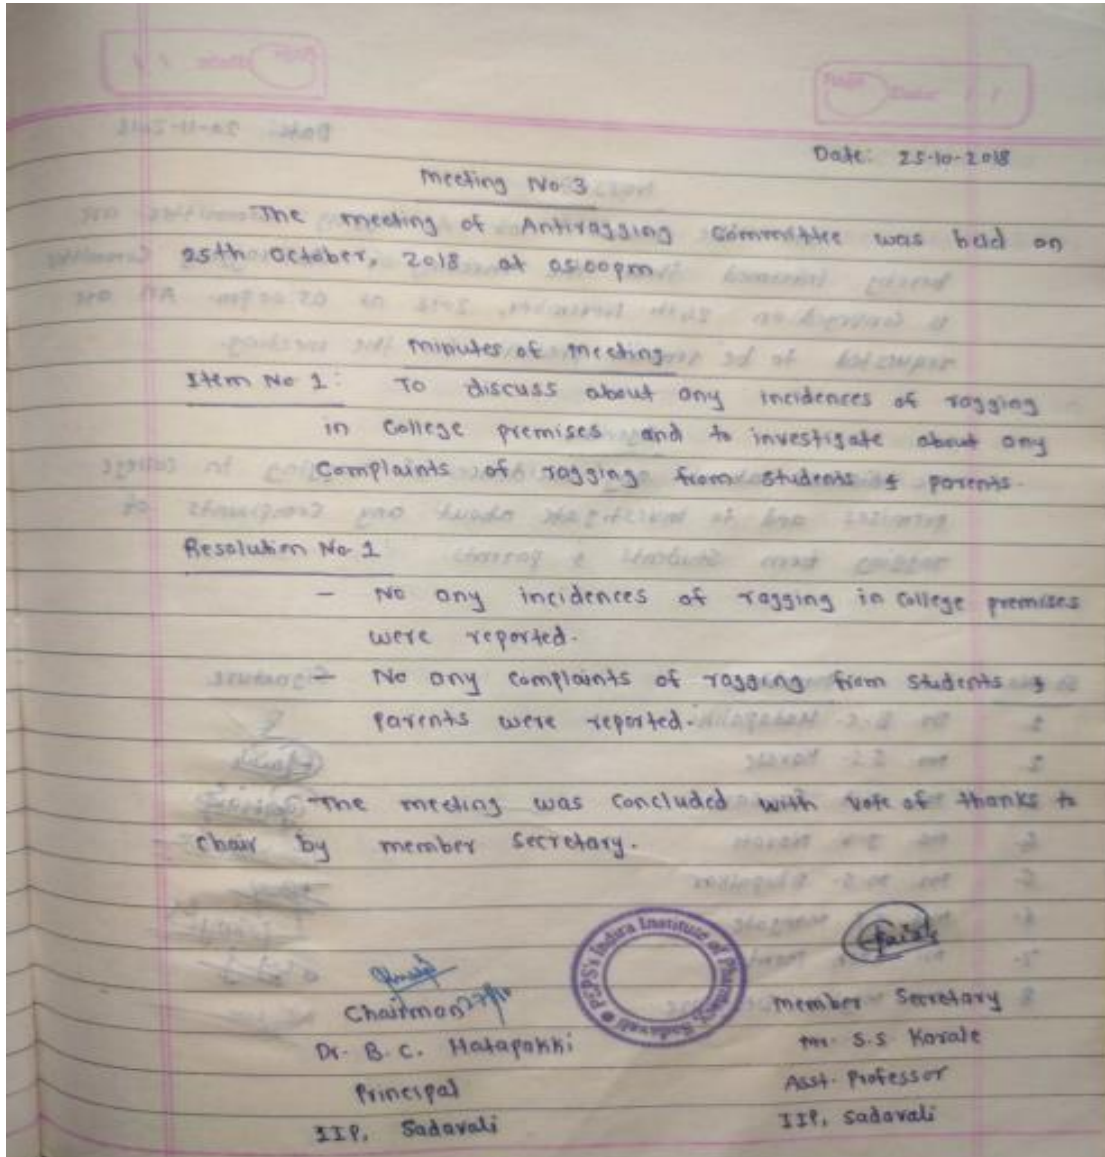 Date: 25-10-2018
Meeting No 3
The meeting of Antiragging Committee was held on
25th October, 2018 at 05:00pm
Minutes of Meeting
Item No 1: To discuss about any incidences of ragging
in College premises and to investigate about any
Complaints of ragging from students & parents.
Resolution No 1
- No any incidences of ragging in College premises
were reported.
- No any complaints of ragging from students &
parents were reported.
The meeting was concluded with vote of thanks to
chair by member secretary.
P.S.P.S's Indira Institute of Pharmacy, Sadavali
Chairman 27/10
Member Secretary
Dr. B. C. Hatapakki
Mr. S.S. Karale
Principal
Asst. Professor
IIP, Sadavali
IIP, Sadavali